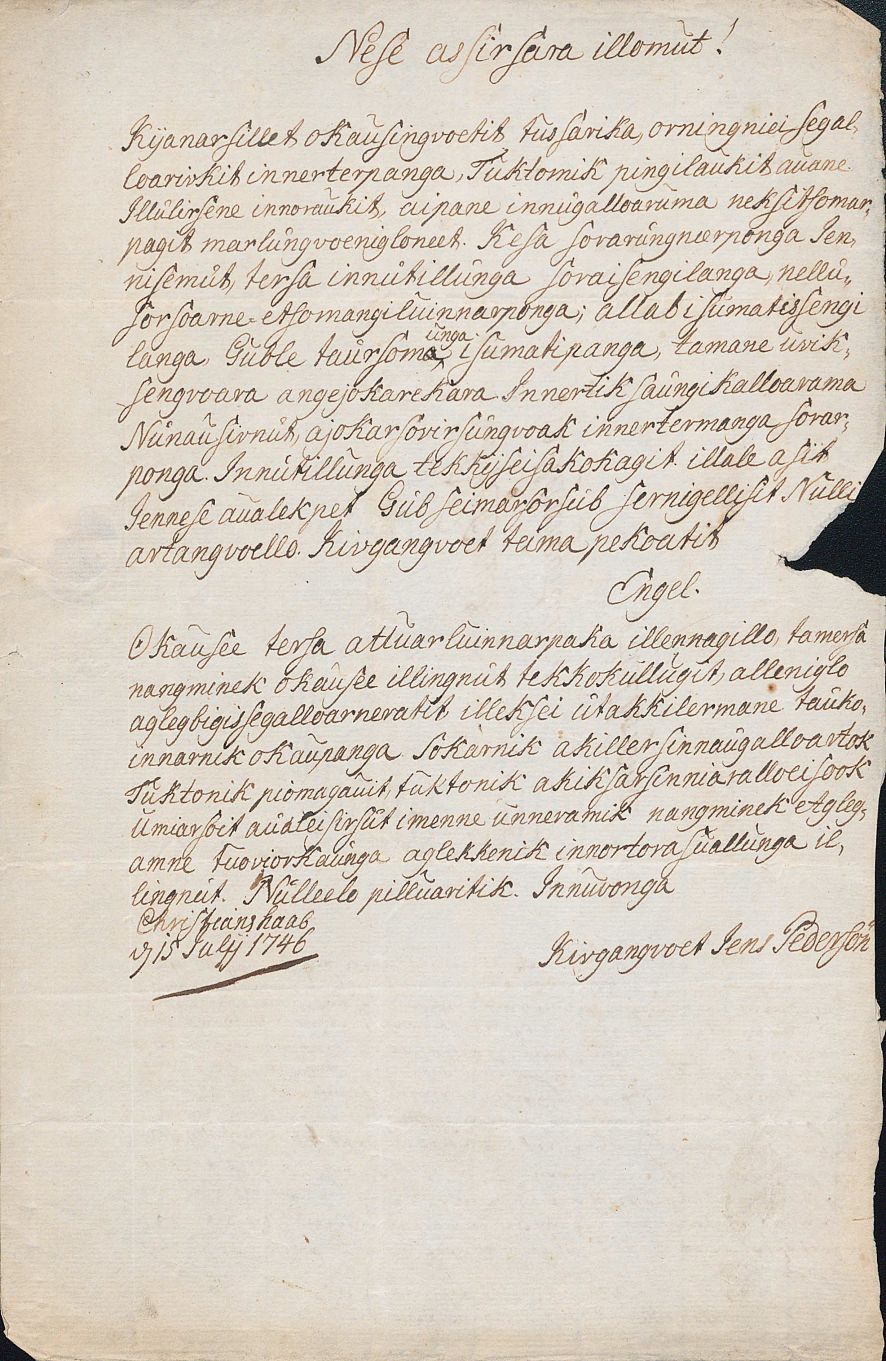 Nese assirsara illomut!
Kÿanarsillet okausingvoetit tussarika, orningniei segal-
loarivkit innerterpanga, Tuktomik pingilaukit auane
Illulirsene innoraukit, aipane innugalloaruma neksitsomar-
pagit marlungvoenigloneet. Kesa sorarungnærponga Ien,
nisemut, tersa innutillunga soraisengilanga, nellu-
sorsoarne-etsomangiluinnarponga; allab isumatissengi
langa, Guble taursoma unga isumatipanga, tamane uvik-
sengvoara angejokarekara. Innertiksaungikalloarama
Nunausivnut, ajokarsovirsungvoak innertermanga sorar-
ponga. Innutillunga tekkÿseisakokagit. illale asit
Jennese aualekpet Gub seimarsorsub sernigellisit Nulli
artangvoello. Kivgangvoet tama pekoatit
Engel.
Okausee tersa attuarluinnarpaka illennagillo, tamersa
nangminek okausee illingnut tekkokullugit, alleniglo
aglegbigissegalloarneratit illeksei utakkilermane tauko,
innarnik okaupanga. Sokarnik akillersinnaugalloartok
Tuktonik piomagauit, tuktonik akiksarsinniaralloeisook
umiarsoit audleisirsut imenne unneramik nangminek Agleg-
amne tuoviorkaunga aglekkenik innortorasuallunga il,
lingnut. Nulleelo pilluaritik. Innuvonga
Christianshaab
d 15 Julÿ 1746
Kivgangvoet Iens Pedersön